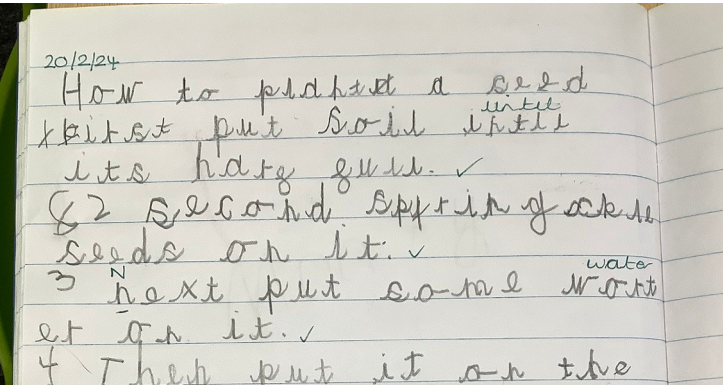 20/2/24
How to plahtet a seed
first put soil intil until
its harf full.
2 second spyringackl
seeds on it.
3 N next put some wort water
er on it.
4 Then put it on the